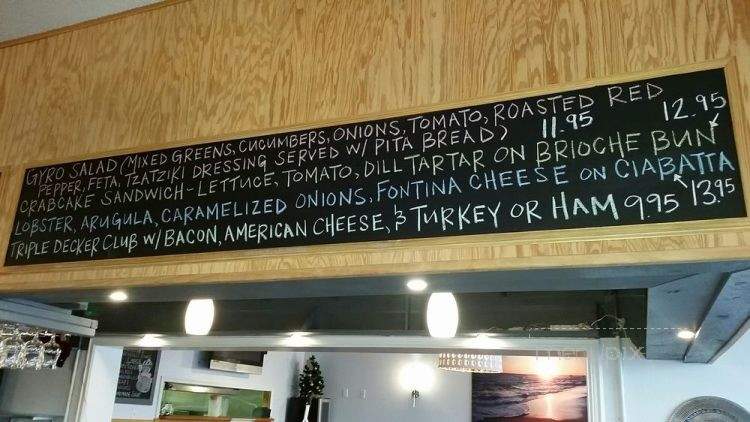 GYRO SALAD (MIXED GREENS, CUCUMBERS, ONIONS, TOMATO, ROASTED RED
PEPPER, FETA, TZATZIKI DRESSING SERVED W/ PITA BREAD) 11.95 12.95
CRABCAKE SANDWICH-LETTUCE, TOMATO, DILL TARTAR ON BRIOCHE BUN
LOBSTER, ARUGULA, CARAMELIZED ONIONS, FONTINA CHEESE ON CIABATTA
TRIPLE DECKER CLUB W/ BACON, AMERICAN CHEESE, & TURKEY OR HAM 9.95 13.95